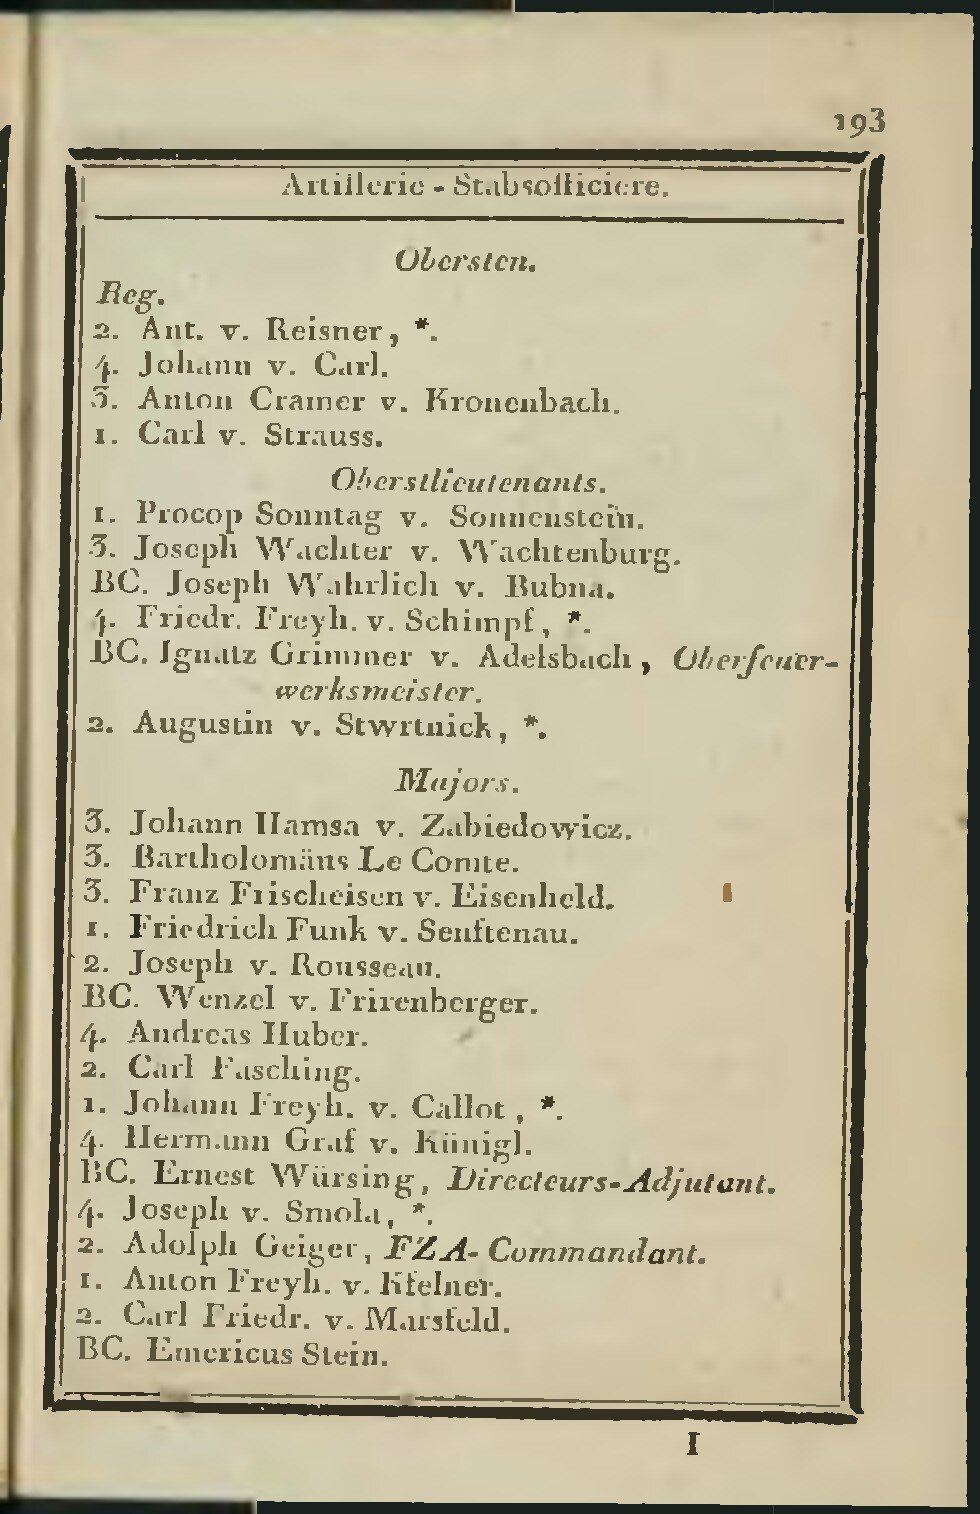 193
Artillerie - Stabsofficiere.
Obersten.
Reg.
2. Ant. v. Reisner, *.
4. Johann v. Carl.
3. Anton Cramer v. Kronenbach.
1. Carl v. Strauss.
Oberstlieutenants.
1. Procop Sonntag v. Sonnenstein.
3. Joseph Wachter v. Wachtenburg.
BC. Joseph Wahrlich v. Bubna.
4. Friedr. Freyh. v. Schimpf, *.
BC. Ignatz Grimmer v. Adelsbach, Oberfeuer-
werksmeister.
2. Augustin v. Stwrtnick, *.
Majors.
3. Johann Hamsa v. Zabiedowicz.
3. Bartholomäus Le Comte.
3. Franz Frischeisen v. Eisenheld.
1. Friedrich Funk v. Senftenau.
2. Joseph v. Rousseau.
BC. Wenzel v. Frirenberger.
4. Andreas Huber.
2. Carl Fasching.
1. Johann Freyh. v. Callot, *.
4. Hermann Graf v. Künigl.
BC. Ernest Würsing, Directeurs-Adjutant.
4. Joseph v. Smola, *.
2. Adolph Geiger, FZA-Commandant.
1. Anton Freyh. v. Kfelner.
2. Carl Friedr. v. Marsfeld.
BC. Emericus Stein.
I